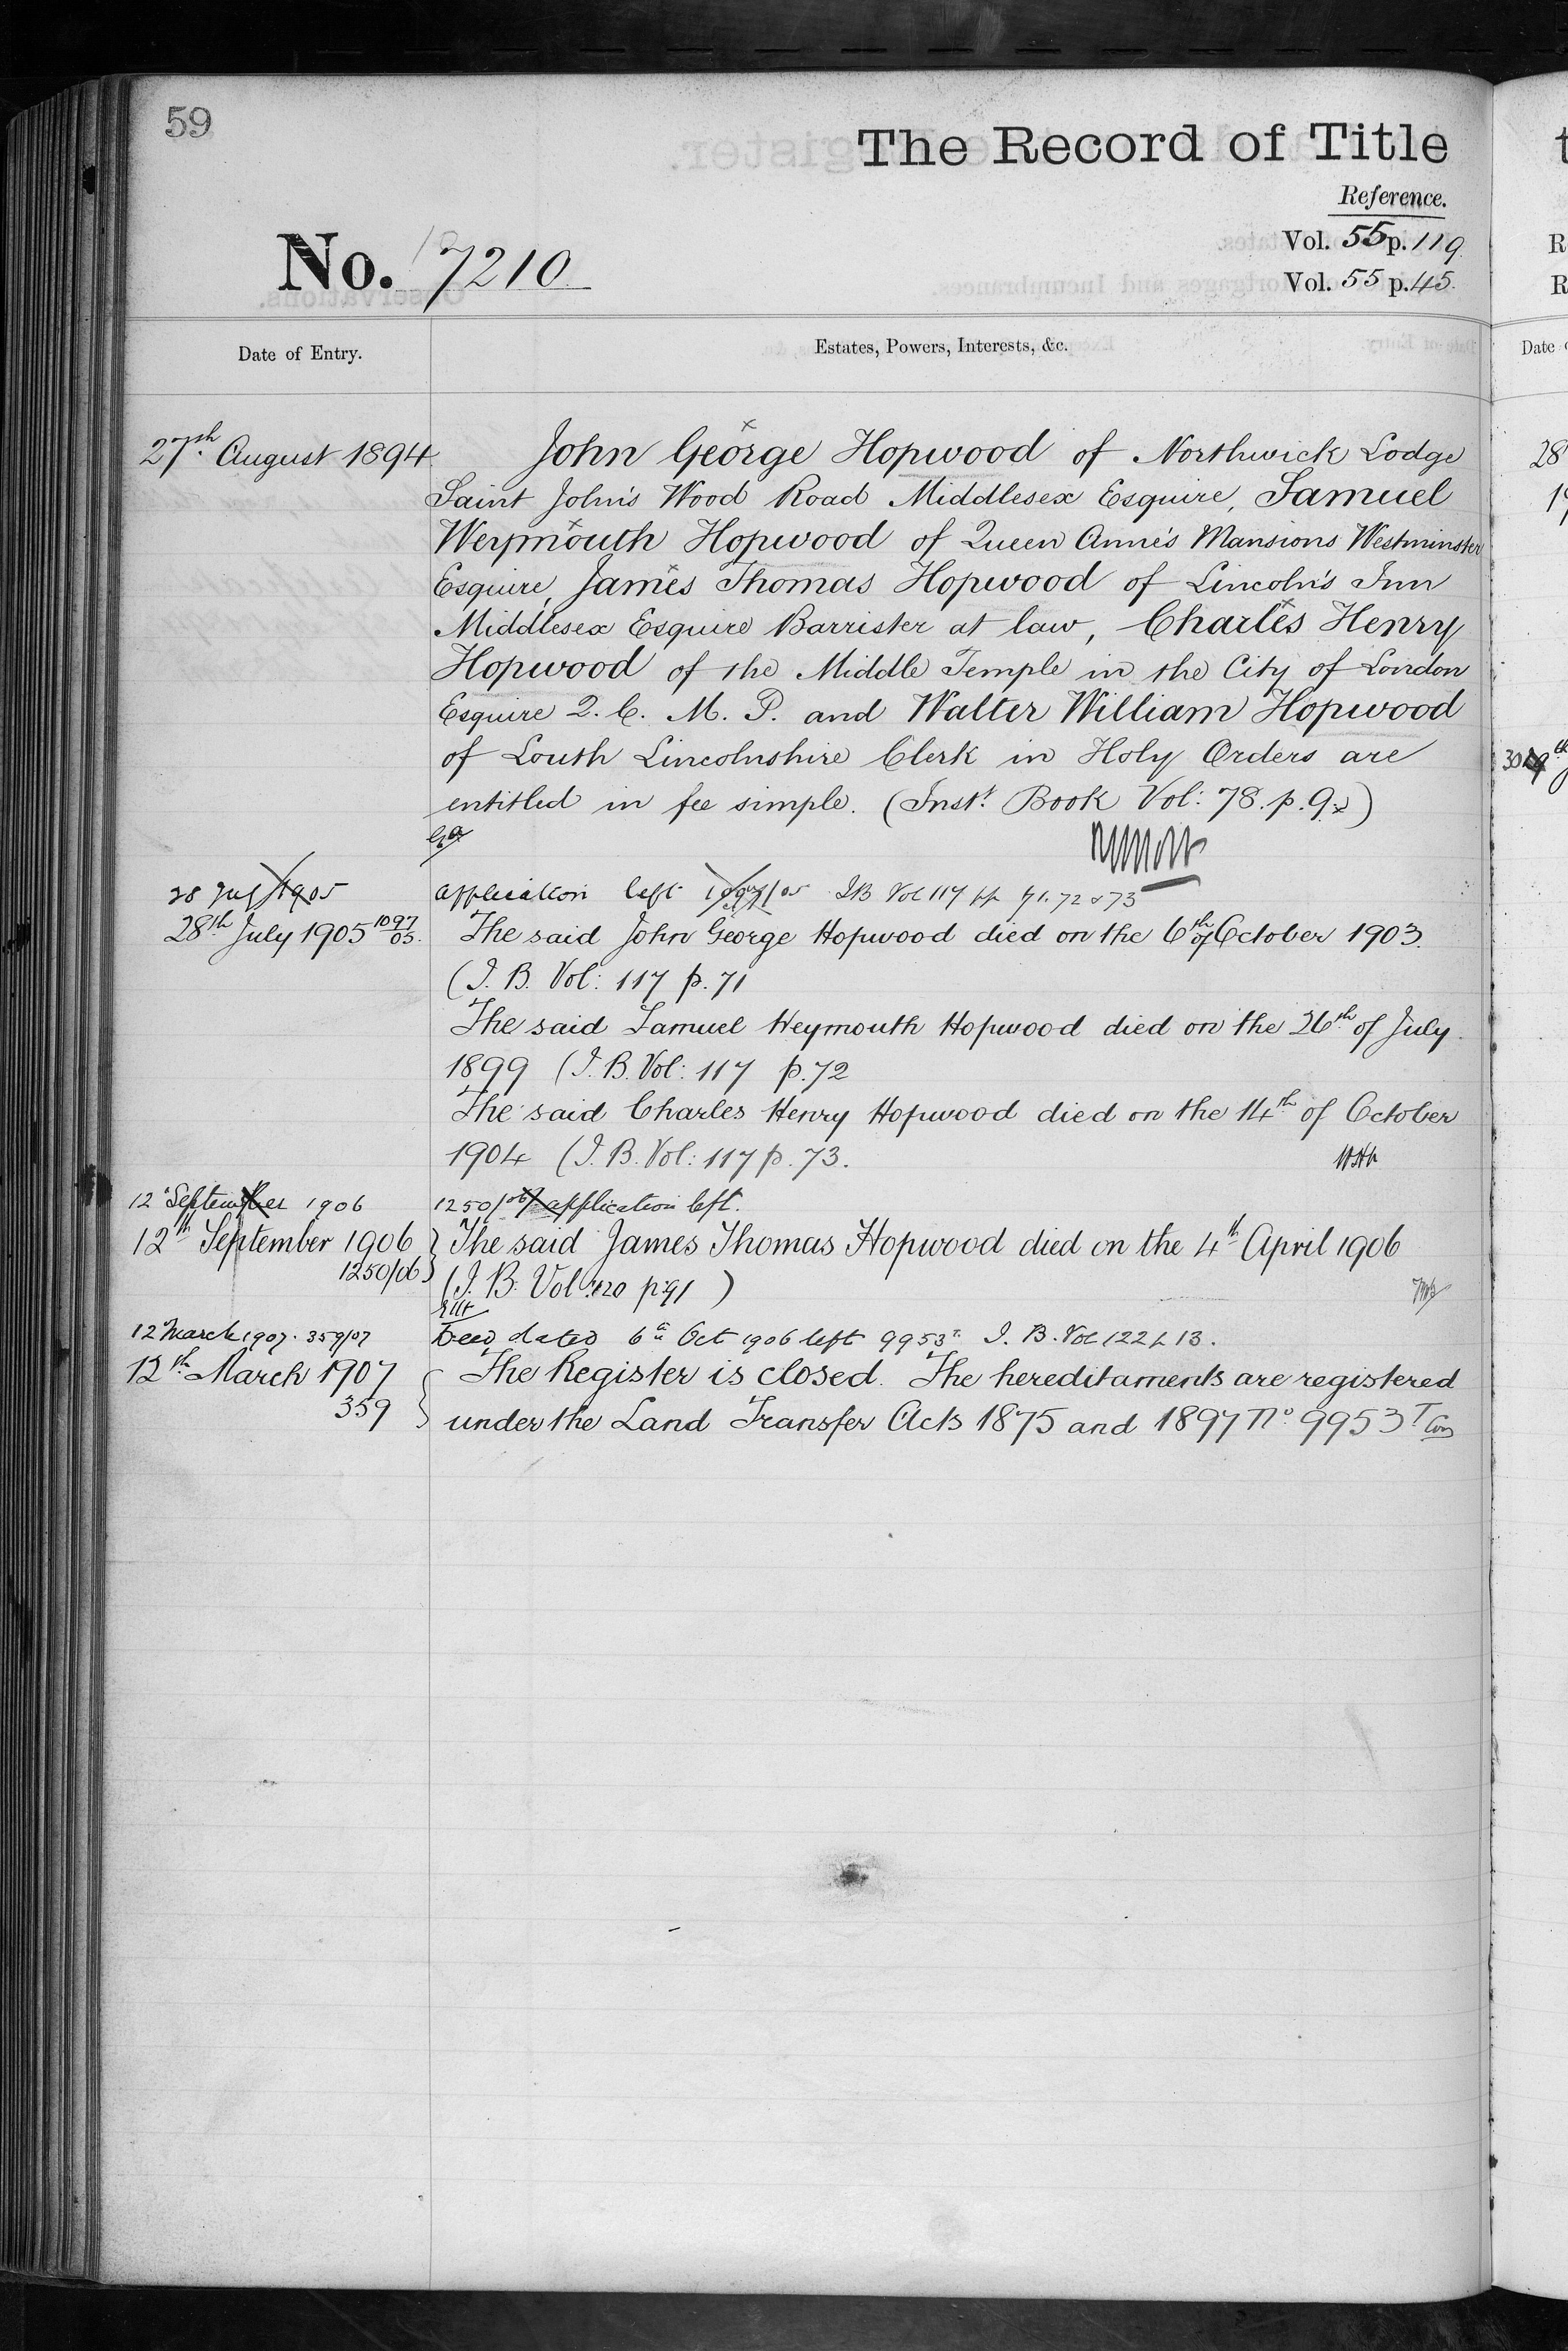 59
The Record of Title
Reference.
Vol. 55 p. 119
No. 7210
Vol. 55 p. 45.
Date of Entry.
Estates, Powers, Interests, &c.
Date
27th August 1894
John George Hopwood of Northwick Lodge
Saint John's Wood Road Middlesex Esquire, Samuel
Weymouth Hopwood of Queen Anne's Mansions Westminster
Esquire, James Thomas Hopwood of Lincoln's Inn
Middlesex Esquire Barrister at law, Charles Henry
Hopwood of the Middle Temple in the City of London
Esquire Q. C. M. P. and Walter William Hopwood
of Louth Lincolnshire Clerk in Holy Orders are
entitled in fee simple. (Inst. Book Vol: 78. p. 92)
28 July 1905 application left 1097/05 I B Vol 117 pp 71. 72 & 73
28th July 1905 1097/05. The said John George Hopwood died on the 6th of October 1903.
(I. B. Vol: 117 p. 71
The said Samuel Weymouth Hopwood died on the 26th of July
1899 (I. B. Vol: 117 p. 72
The said Charles Henry Hopwood died on the 14th of October
1904 (I. B. Vol: 117 p. 73.
12 September 1906 1250/06 application left.
12th September 1906 } The said James Thomas Hopwood died on the 4th April 1906
1250/06 } (I. B. Vol: 120 p: 91 )
12 March 1907. 359/07 Deed dated 6th Oct 1906 left 9953T. I. B. Vol 122 p 13.
12th March 1907 { The Register is closed. The hereditaments are registered
359 } under the Land Transfer Acts 1875 and 1897 No. 9953 T